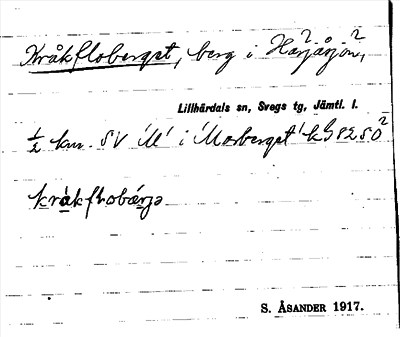 Kråkfloberget, berg i
Lillhärdals sn, Svegs tg, Jämtl. l.
½ km. SV 'M' i 'Morberget' k
kråkflobärjə
S. ÅSANDER 1917.